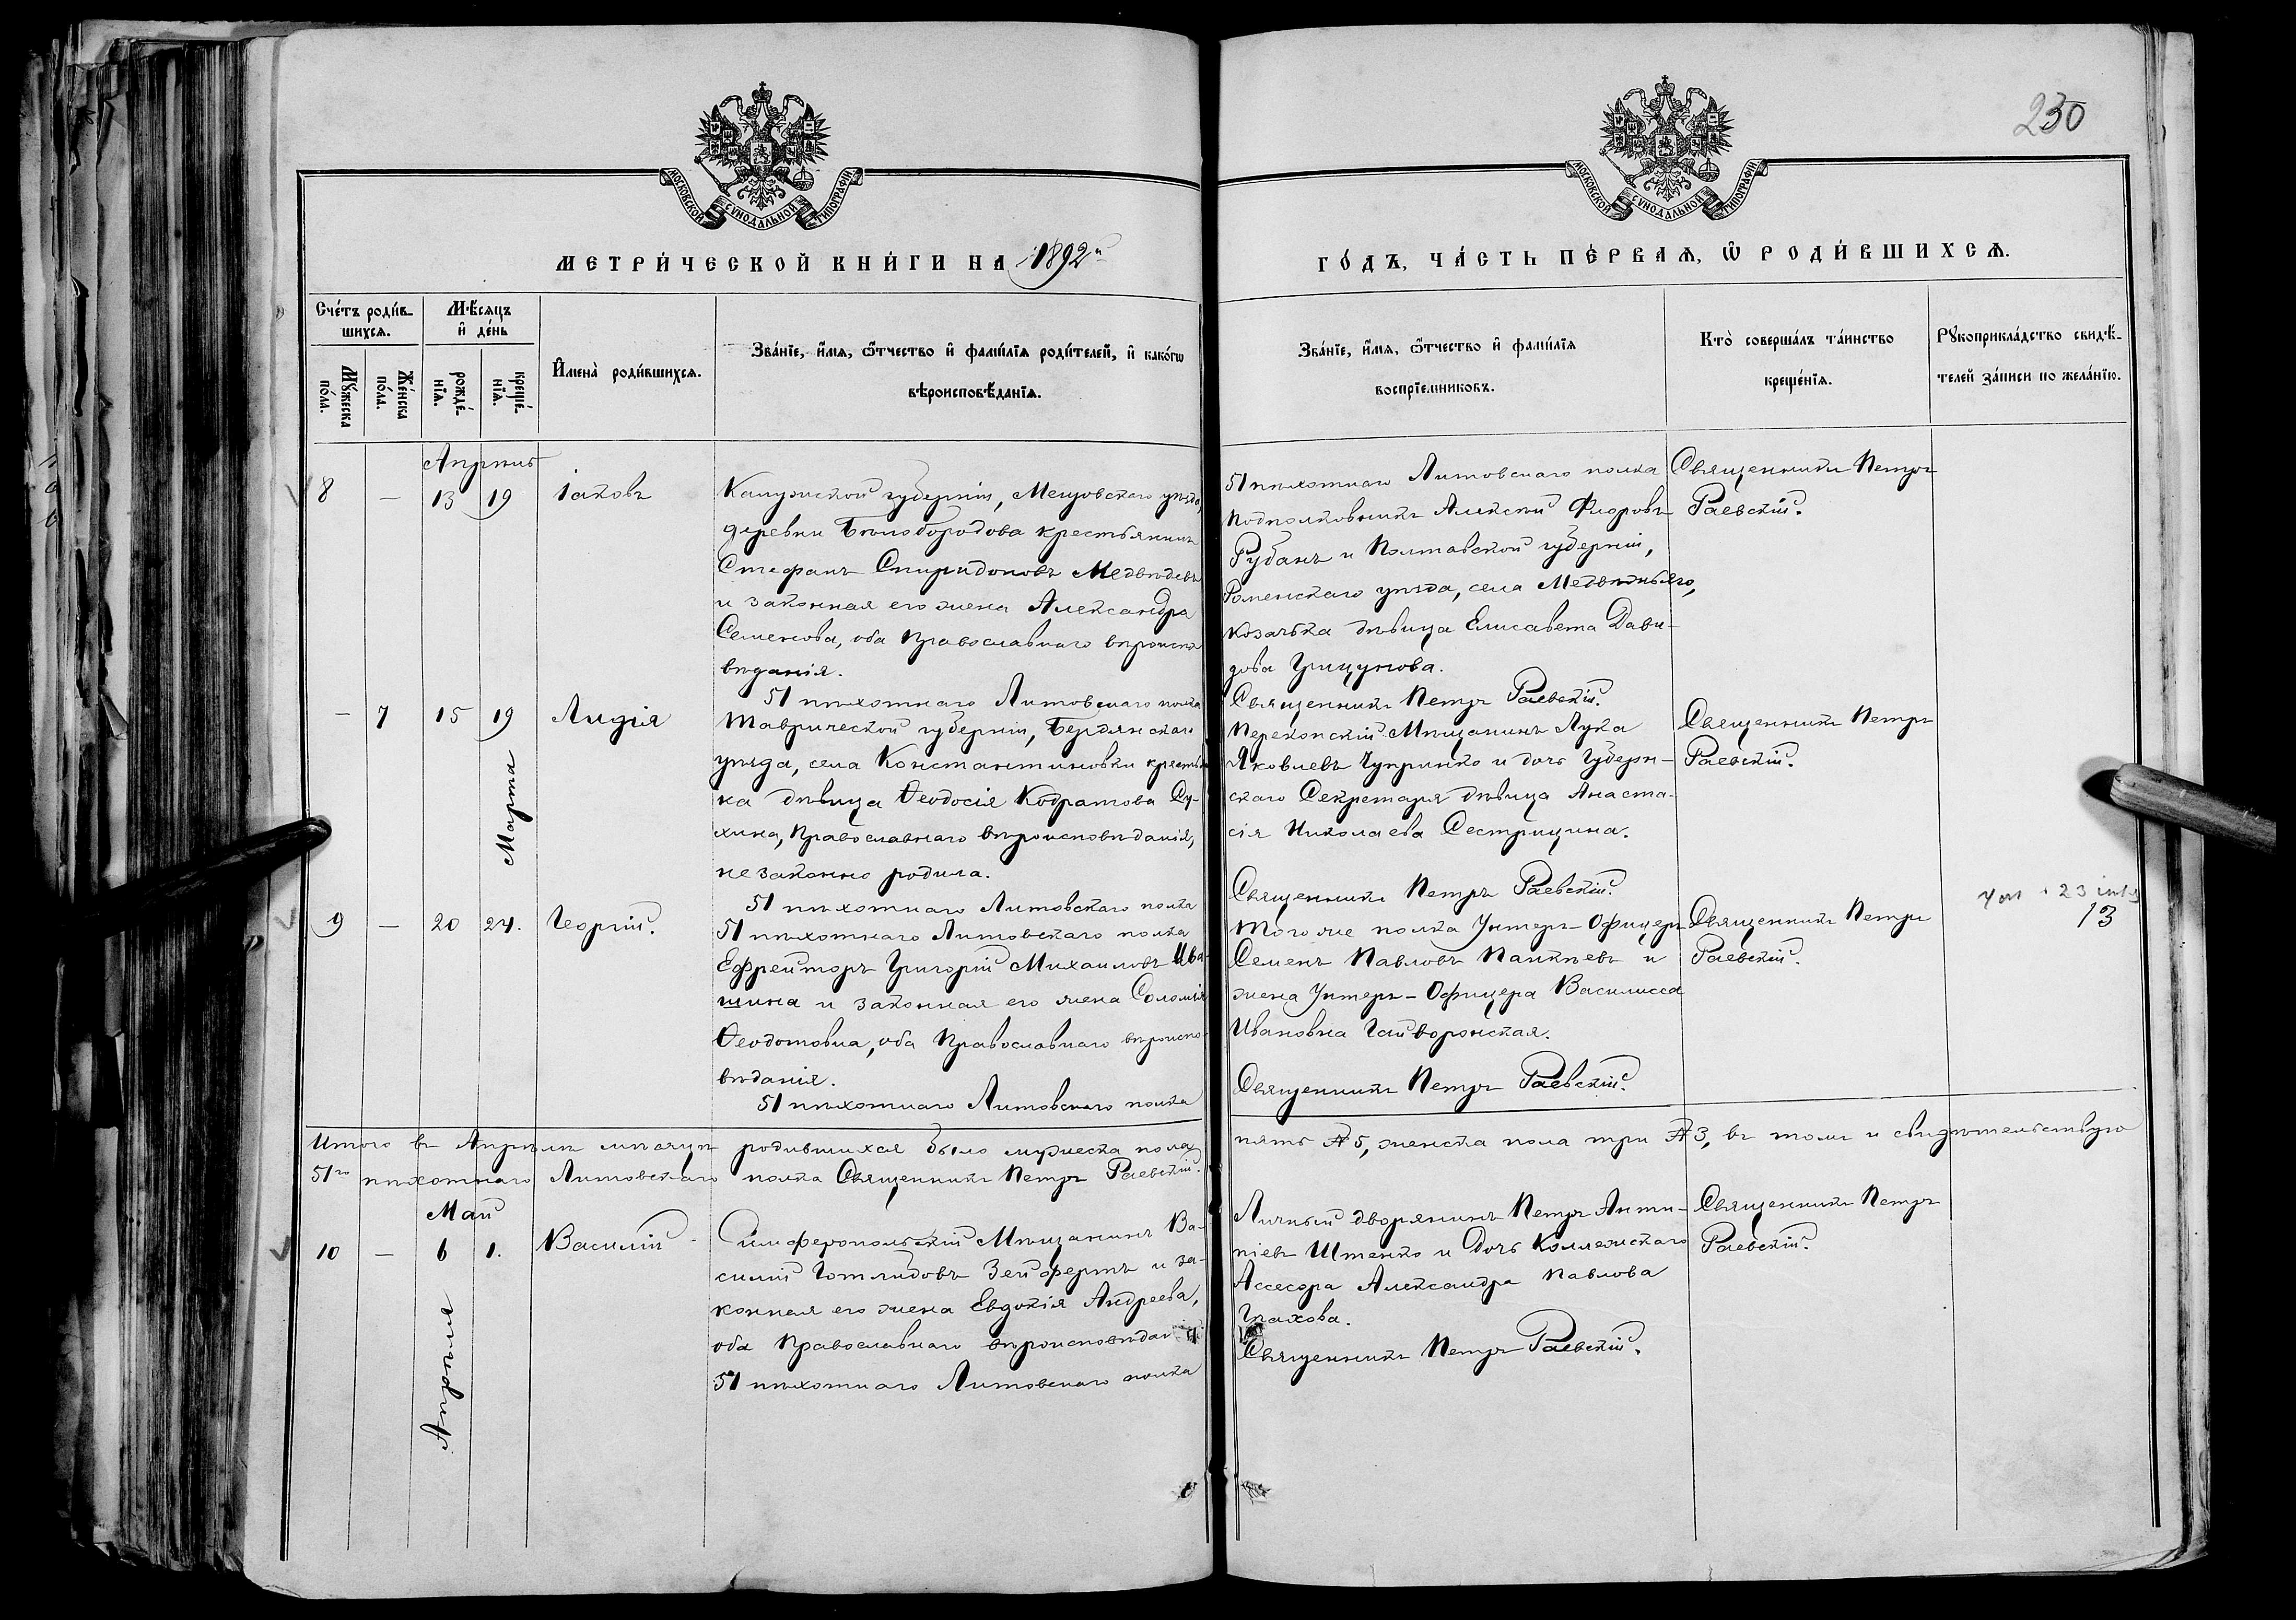 230
МОСКОВСКОЙ СѴНОДАЛЬНОЙ ТИПОГРАФІИ
МОСКОВСКОЙ СѴНОДАЛЬНОЙ ТИПОГРАФІИ
МЕТРИ́ЧЕСКОЙ КНИ́ГИ НА 1892й
ГО́ДЪ, ЧА́СТЬ ПЕ́РВАѦ, Ѽ РОДИ́ВШИХСѦ.
Сче́тъ роди́в-
шихсѧ.
Мꙋ́жеска
по́ла.
Же́нска
по́ла.
Мѣ́сѧцъ
и҆ де́нь
рожде́-
нїѧ.
креще́-
нїѧ.
И҆мена̀ роди́вшихсѧ.
Зва́нїе, и҆́мѧ, ѻ҆́тчество и҆ фами́лїѧ роди́телей, и҆ како́гѡ
вѣроисповѣ́данїѧ.
Зва́нїе, и҆́мѧ, ѻ҆́тчество и҆ фами́лїѧ
воспрїемниковъ.
Кто̀ соверша́лъ та́инство
креще́нїѧ.
Рꙋкоприкла́дство свидѣ́-
телей за́писи по жела́нїю.
Апрѣль
8 — 13 19 Іаковъ
Калужской губерніи, Мещовскаго уѣзда,
деревни Бѣлобородова крестьянинъ
Стефанъ Спиридоновъ Медвѣдевъ
и законная его жена Александра
Семенова, оба Православнаго вѣроиспо
вѣданія.
51 пѣхотнаго Литовскаго полка
51 пѣхотнаго Литовскаго полка
Подполковникъ Алексѣй Флоровъ
Рубанъ и Полтавской губерніи,
Роменскаго уѣзда, села Медвѣжьяго,
козачька дѣвица Елисавета Дави-
дова Грицунова.
Священникъ Петръ Раевскій.
Священникъ Петръ
Раевскій.
— 7 15 19 Лидія
Марта
Таврической губерніи, Бердянскаго
уѣзда, села Константиновки крестья
ка дѣвица Ѳеодосія Кодратова Су-
хина, Православнаго вѣроисповѣданія,
незаконно родила.
51 пѣхотнаго Литовскаго полка
Перекопскій Мѣщанинъ Лука
Яковлевъ Чупринко и дочь Губерн-
скаго Секретаря дѣвица Анаста-
сія Николаева Сестрицина.
Священникъ Петръ Раевскій.
Священникъ Петръ
Раевскій.
9 — 20 24. Георгій.
51 пѣхотнаго Литовскаго полка
Ефрейторъ Григорій Михаиловъ Ива-
шина и законная его жена Соломія
Ѳеодотовна, оба Православнаго вѣроиспо-
вѣданія.
51 пѣхотнаго Литовскаго полка
Того же полка Унтеръ-Офицеръ
Семенъ Павловъ и
жена Унтеръ-Офицера Василисса
Ивановна Гайворонская.
Священникъ Петръ Раевскій.
Священникъ Петръ
Раевскій.
23
13
Итого въ Апрѣлѣ мѣсяцѣ родившихся было мужеска пола
пять № 5, женска пола три № 3, въ томъ и свидѣтельствую
51го пѣхотнаго Литовскаго полка Священникъ Петръ Раевскій.
Май
10 — 6 1. Василій
Апрѣля
Симферопольскій Мѣщанинъ Ва-
силій Готлидовъ Зейфертъ и за-
конная его жена Евдокія Андреева,
оба Православнаго вѣроисповѣданія
51 пѣхотнаго Литовскаго полка
Личный дворянинъ Петръ Анти-
піевъ Штенко и Дочь Коллежскаго
Ассесора Александра Павлова
Священникъ Петръ Раевскій.
Священникъ Петръ
Раевскій.